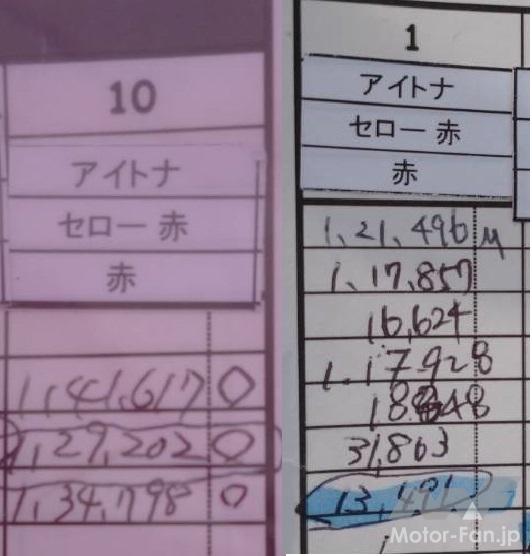 10
アイトナ
セロー 赤
赤
1,41,617 0
1,29,202 0
1,34,798 0
1
アイトナ
セロー 赤
赤
1,21,496 M
1,17,857
16,624
1.17928
31,863
Motor-Fan.jp